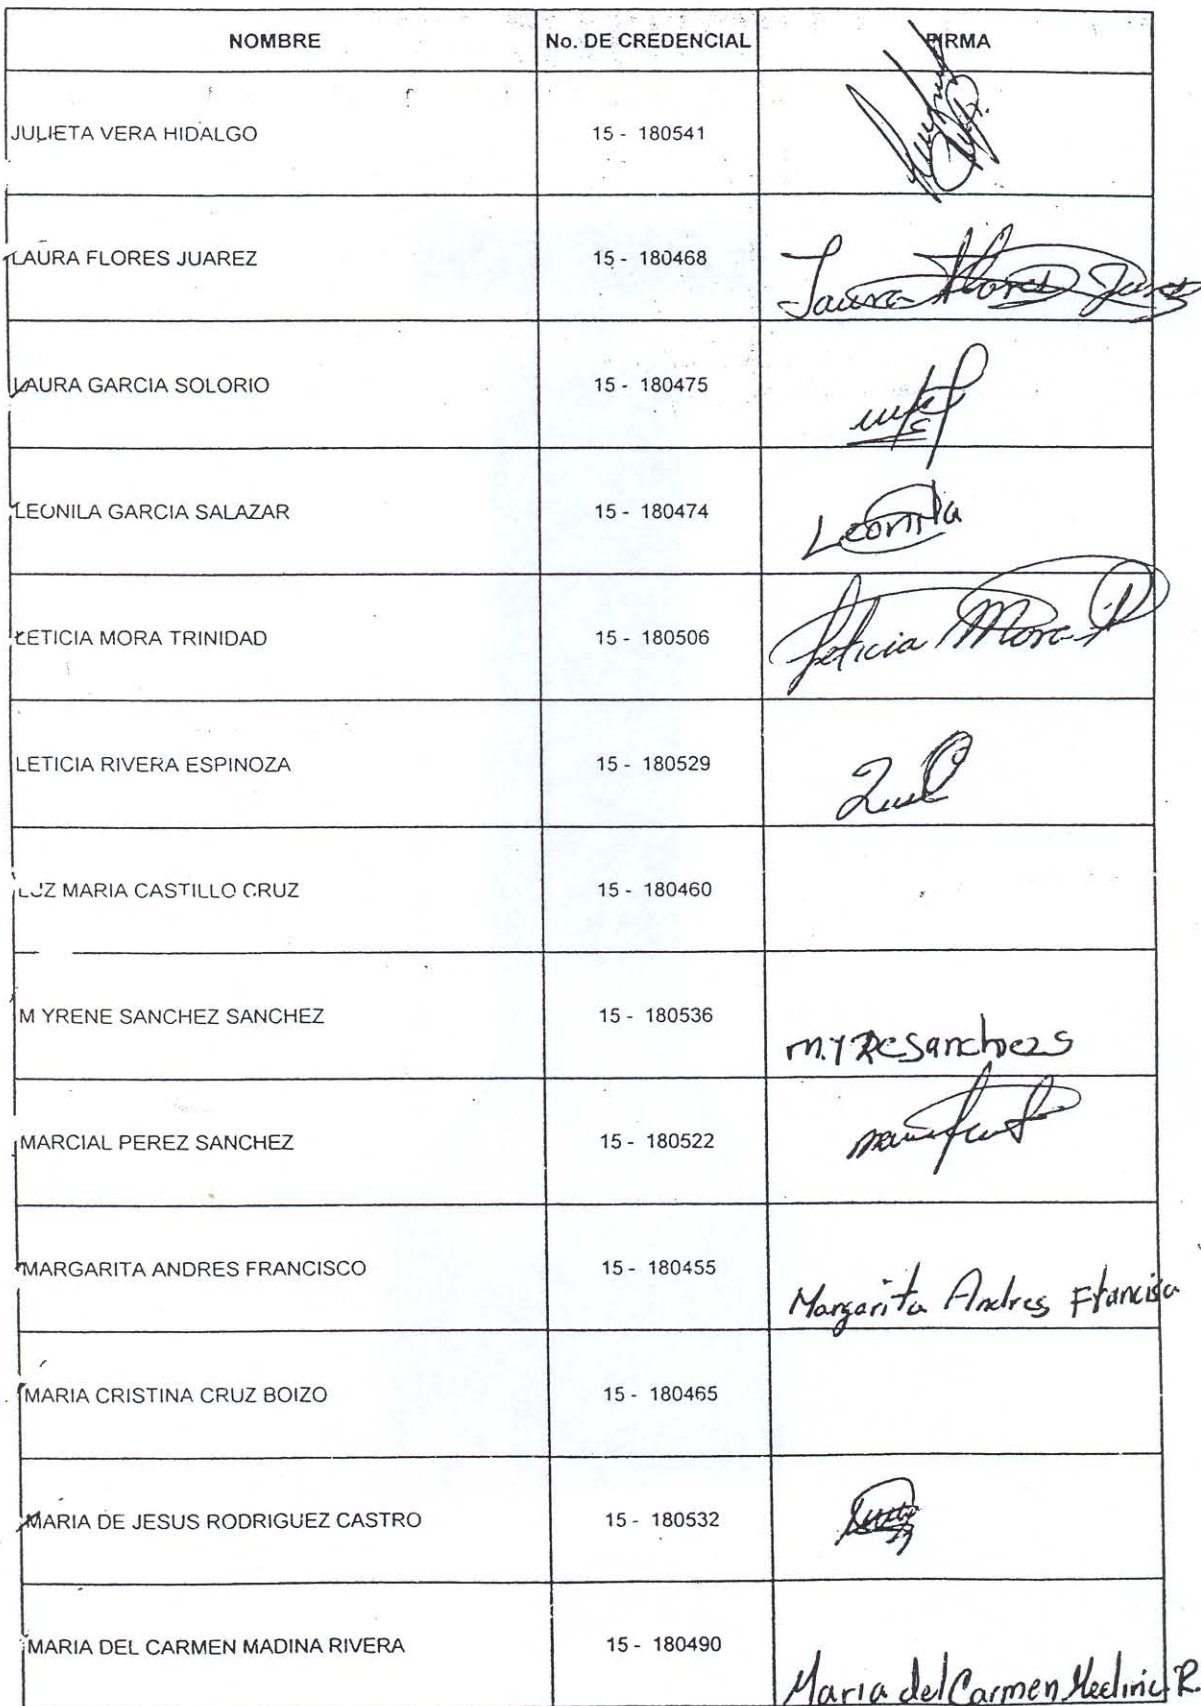 NOMBRE No. DE CREDENCIAL FIRMA
JULIETA VERA HIDALGO 15 - 180541
LAURA FLORES JUAREZ 15 - 180468
Laura Flores
LAURA GARCIA SOLORIO 15 - 180475
LEONILA GARCIA SALAZAR 15 - 180474
Leonila
LETICIA MORA TRINIDAD 15 - 180506
Leticia Mora
LETICIA RIVERA ESPINOZA 15 - 180529
LUZ MARIA CASTILLO CRUZ 15 - 180460
M YRENE SANCHEZ SANCHEZ 15 - 180536
MARCIAL PEREZ SANCHEZ 15 - 180522
MARGARITA ANDRES FRANCISCO 15 - 180455
Margarita Andres Francisca
MARIA CRISTINA CRUZ BOIZO 15 - 180465
MARIA DE JESUS RODRIGUEZ CASTRO 15 - 180532
MARIA DEL CARMEN MADINA RIVERA 15 - 180490
Maria del Carmen Medina R.